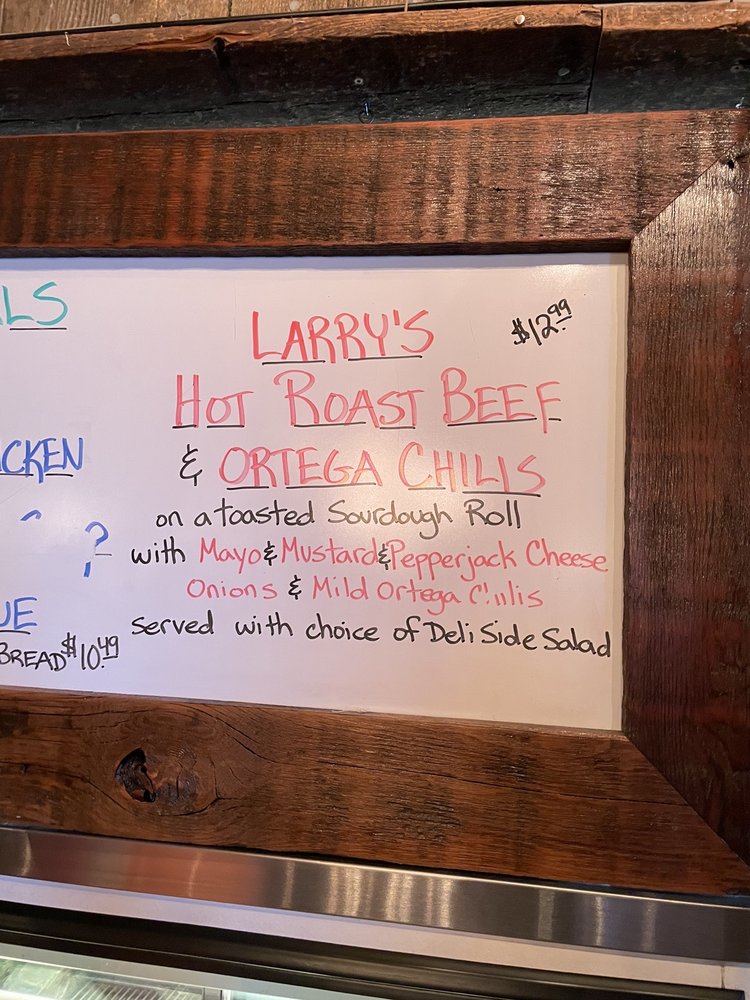 LS
LARRY'S
$12.99
HOT ROAST BEEF
CKEN
& ORTEGA CHILIS
on a toasted Sourdough Roll
?
with Mayo & Mustard & Pepperjack Cheese
Onions & Mild Ortega Chilis
UE
served with choice of Deli Side Salad
BREAD $10.49